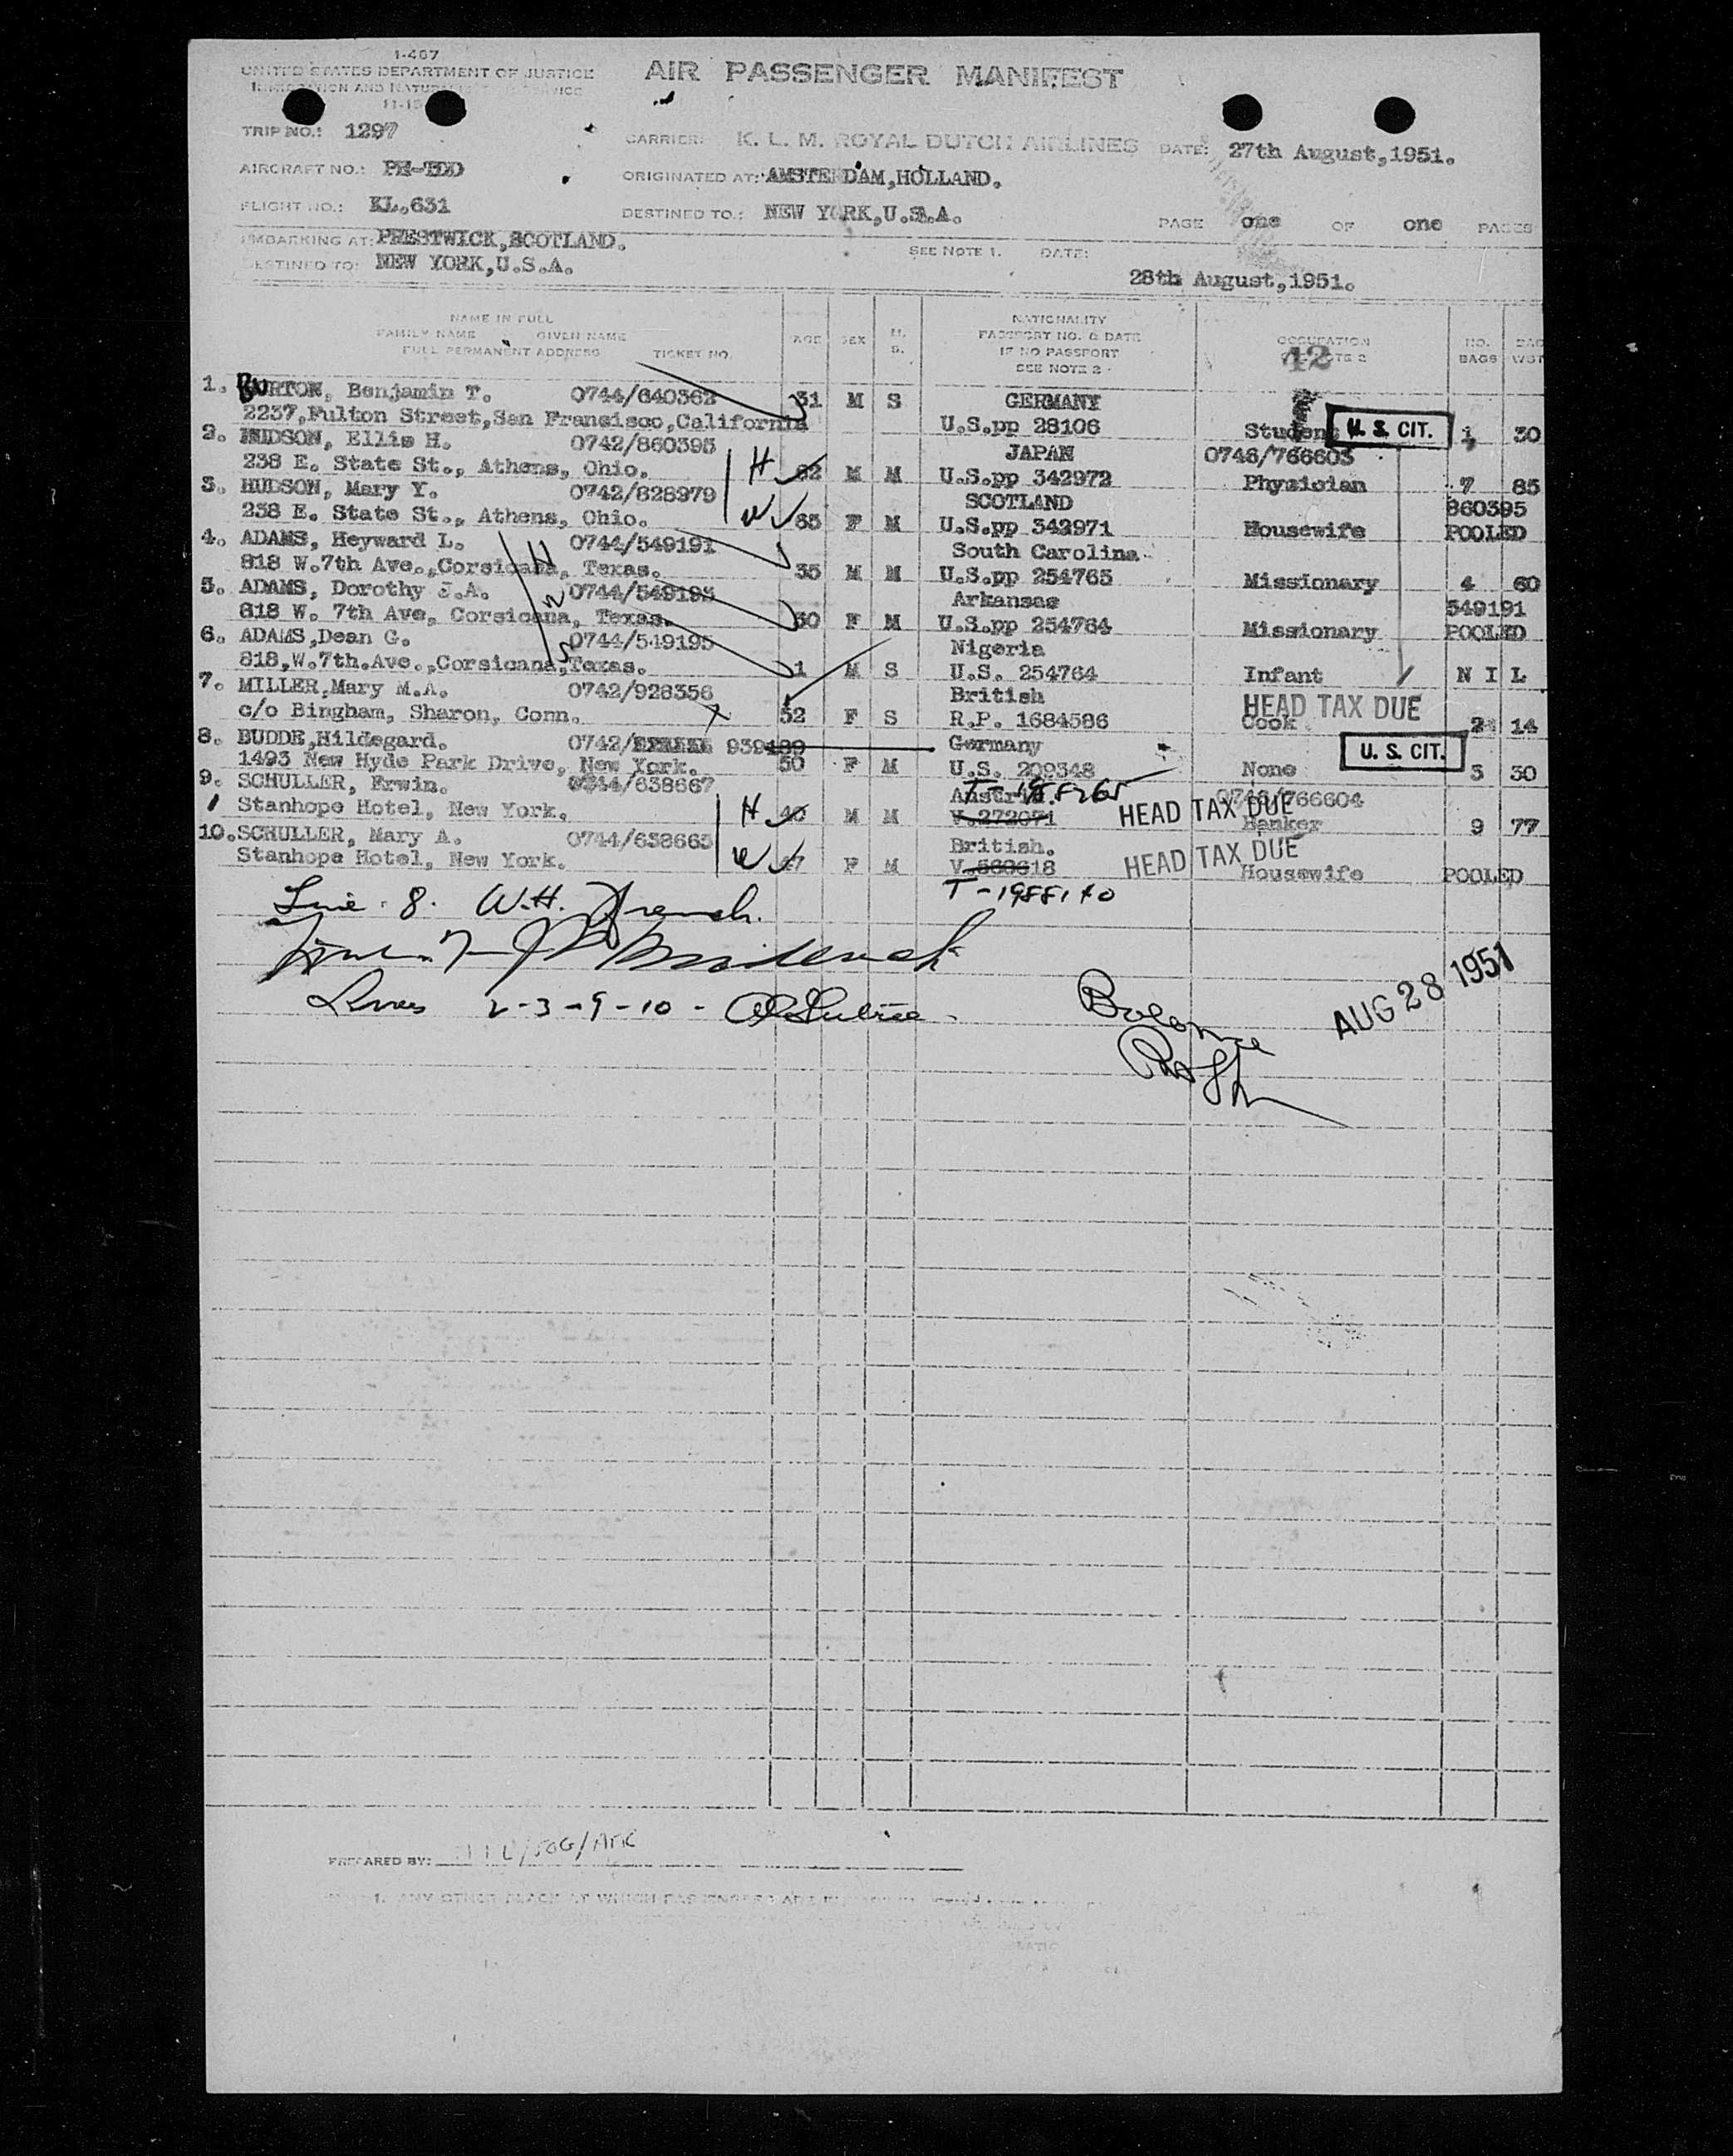 1-467
UNITED STATES DEPARTMENT OF JUSTICE
AIR PASSENGER MANIFEST
TRIP NO.: 1297
CARRIER: K. L. M. ROYAL DUTCH AIRLINES DATE: 27th August,1951.
AIRCRAFT NO.:
ORIGINATED AT: AMSTERDAM,HOLLAND.
FLIGHT NO.: KL.631
DESTINED TO.: NEW YORK,U.S.A.
PAGE one OF one PAGES
EMBARKING AT: PRESTWICK,SCOTLAND.
SEE NOTE 1. DATE:
DESTINED TO: NEW YORK,U.S.A.
28th August,1951.
NAME IN FULL
FAMILY NAME GIVEN NAME
FULL PERMANENT ADDRESS TICKET NO.
AGE SEX M. S.
NATIONALITY
PASSPORT NO. & DATE
IF NO PASSPORT
SEE NOTE 2
OCCUPATION
NOTE 2
42
NO. BAGS
BAG WGT
1. BURTON, Benjamin T. 0744/640362 31 M S GERMANY
2237,Fulton Street,San Francisco,California U.S.pp 28106 Student U. S. CIT. 1 30
2. HUDSON, Ellis H. 0742/860395 JAPAN 0746/766603
238 E. State St., Athens, Ohio. H 62 M M U.S.pp 342972 Physician 7 85
3. HUDSON, Mary Y. 0742/828979 SCOTLAND 860395
238 E. State St., Athens, Ohio. W 65 F M U.S.pp 342971 Housewife POOLED
4. ADAMS, Heyward L. 0744/549191 South Carolina
818 W.7th Ave.,Corsicana, Texas. H 35 M M U.S.pp 254765 Missionary 4 60
5. ADAMS, Dorothy J.A. 0744/549193 Arkansas 549191
818 W. 7th Ave, Corsicana, Texas. W 30 F M U.S.pp 254764 Missionary POOLED
6. ADAMS,Dean G. 0744/549195 Nigeria
818,W.7th.Ave.,Corsicana,Texas. S 1 M S U.S. 254764 Infant N I L
7. MILLER,Mary M.A. 0742/928356 British HEAD TAX DUE
c/o Bingham, Sharon, Conn. 52 F S R.P. 1684586 Cook 2 14
8. BUDDE,Hildegard. 0742/ 939489 Germany U. S. CIT.
1493 New Hyde Park Drive, New York. 50 F M U.S. 209348 None 3 30
9. SCHULLER, Erwin. 0744/638667 Austria 0746/766604
Stanhope Hotel, New York. H 46 M M V.272071 HEAD TAX DUE Banker 9 77
10. SCHULLER, Mary A. 0744/638663 British. HEAD TAX DUE
Stanhope Hotel, New York. W 47 F M V 560618 Housewife POOLED
T-1988140
Line 8. W.H. French.
Lines 2-3-9-10 -
Balance
AUG 28 1951
PREPARED BY:
1. ANY OTHER PLACE AT WHICH PASSENGERS ARE